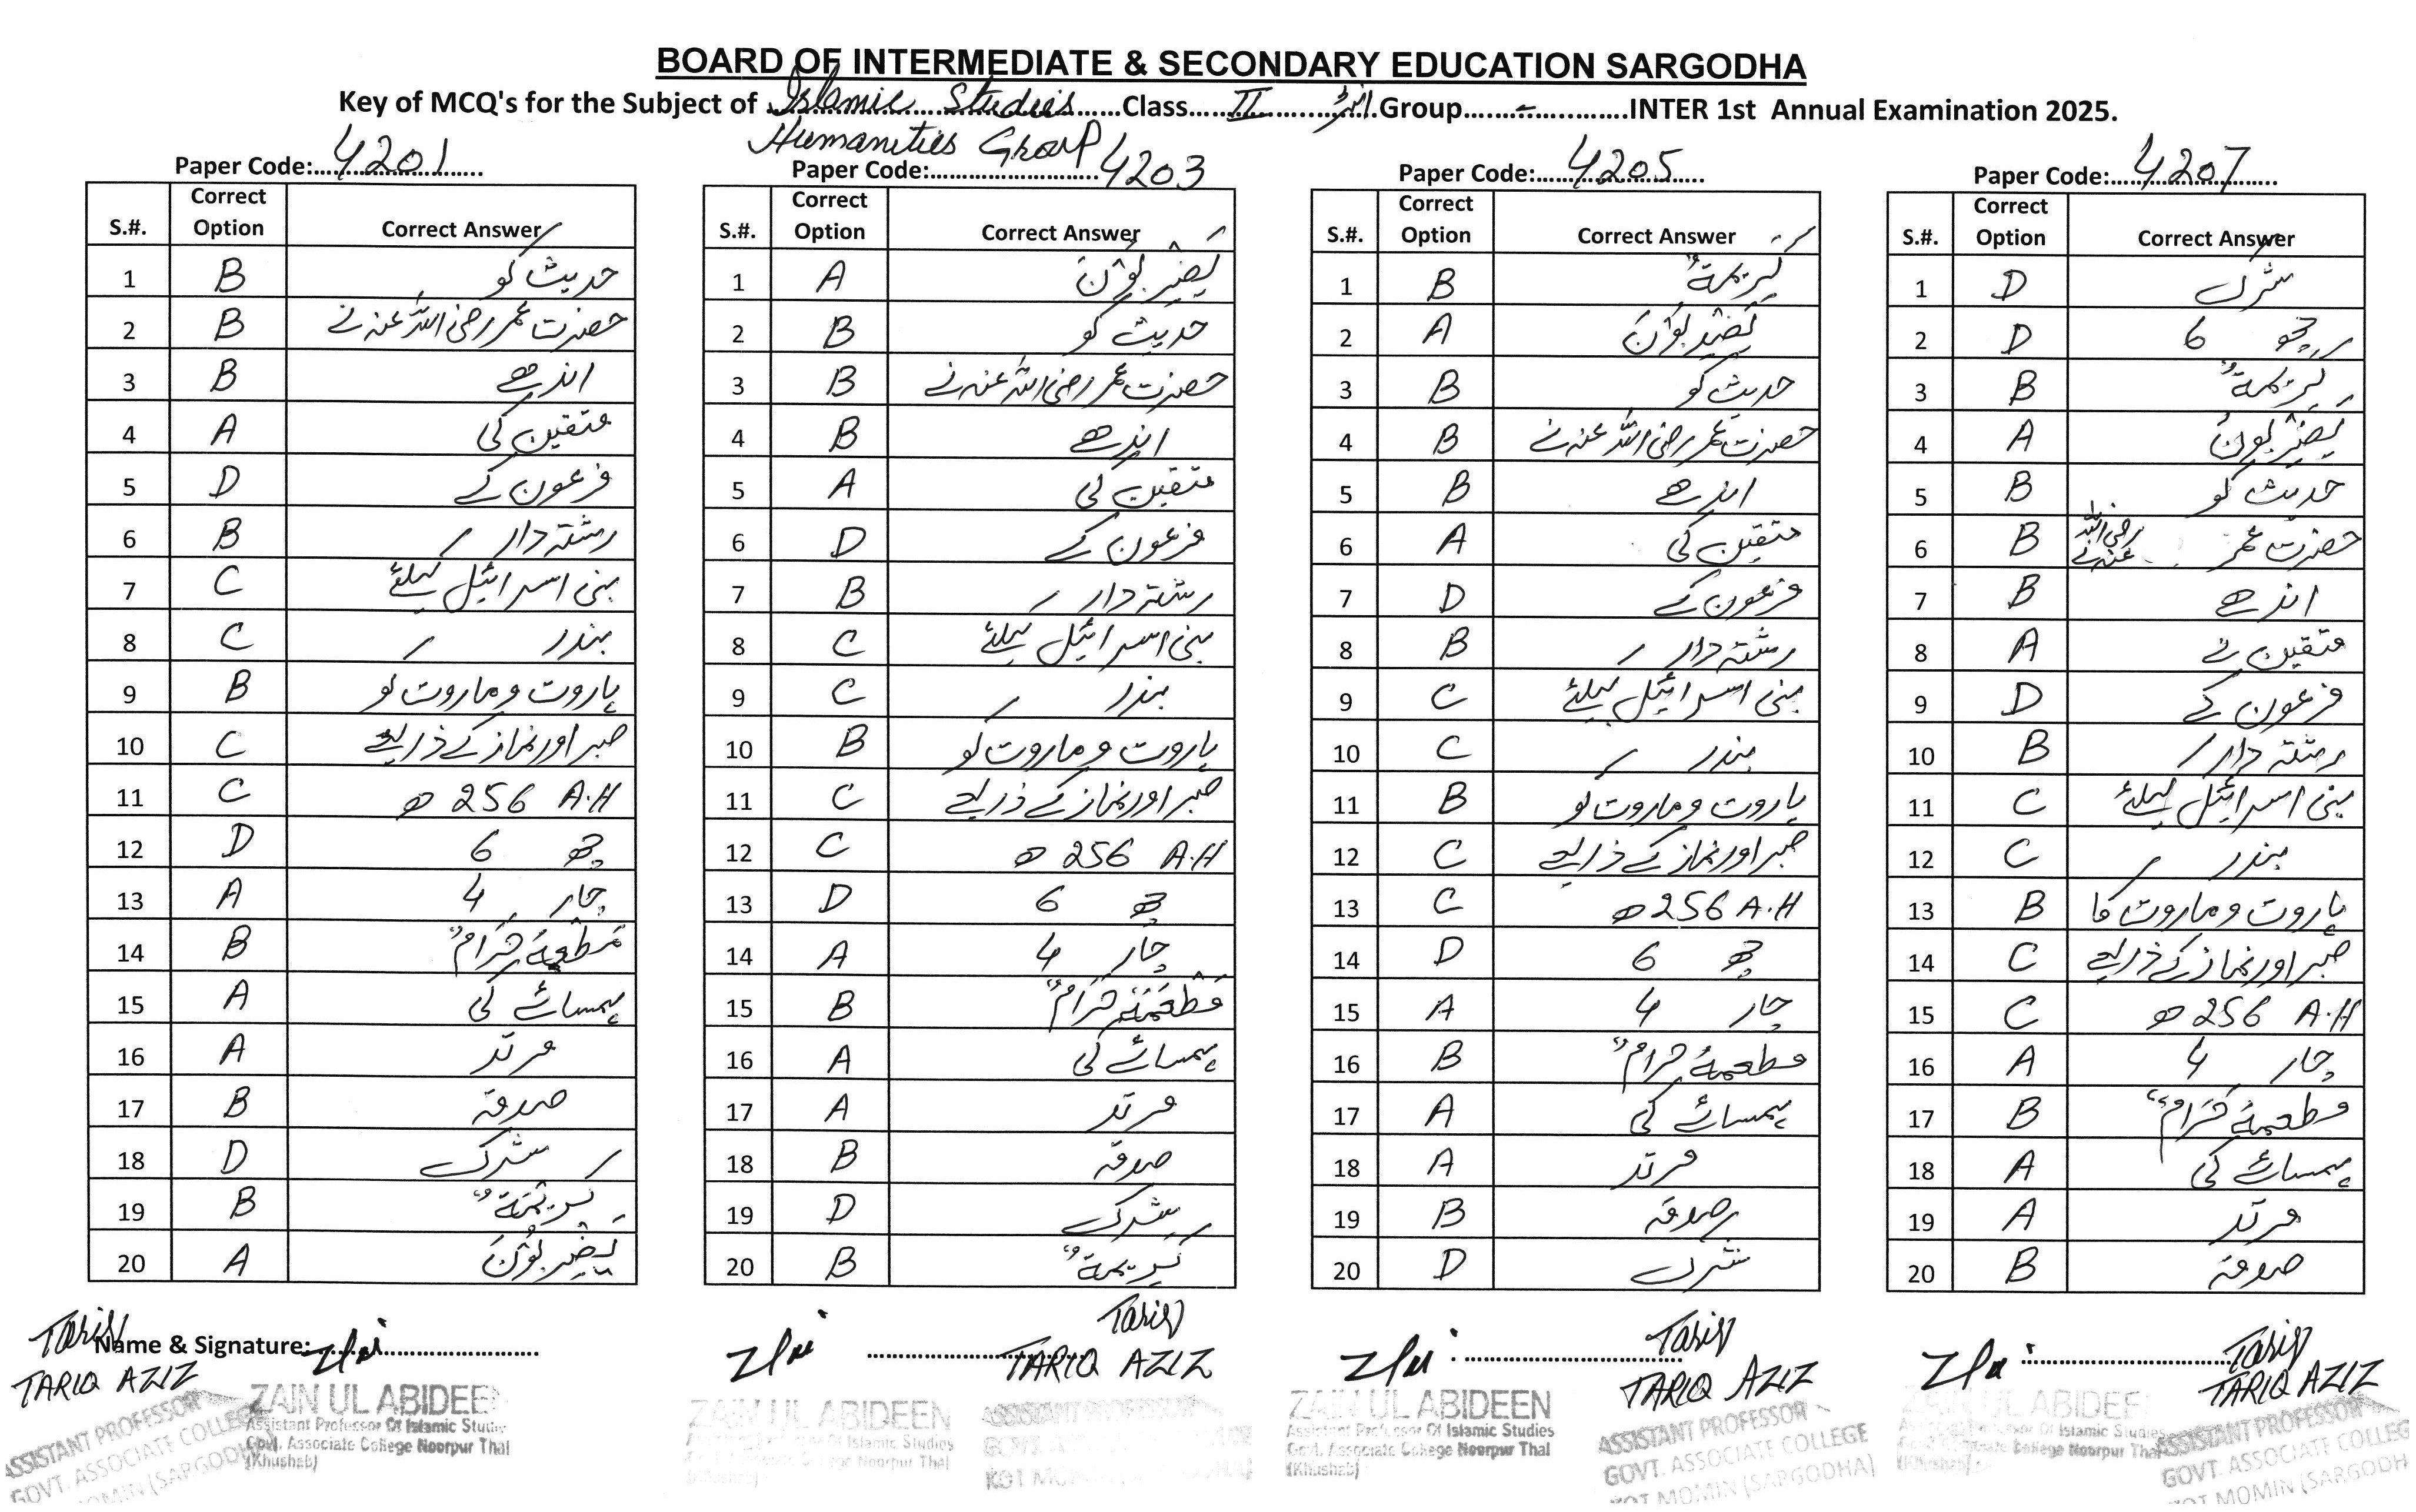 BOARD OF INTERMEDIATE & SECONDARY EDUCATION SARGODHA
Key of MCQ's for the Subject of Islamic Studies Class II Group INTER 1st Annual Examination 2025.
Humanities Group
Paper Code: 4201
S.#. Correct Option Correct Answer
1 B حدیث کو
2 B حضرت عمر رضی اللہ عنہ نے
3 B اندھے
4 A متقین کی
5 D فرعون کے
6 B رشتہ دار
7 C بنی اسرائیل کیلئے
8 C بندر
9 B ہاروت و ماروت کو
10 C صبر اور نماز کے ذریعے
11 C 256 A.H ھ
12 D چھ 6
13 A چار 4
14 B
15 A ہمسائے کی
16 A مرتد
17 B صدقہ
18 D شرک
19 B
20 A
Paper Code: 4203
S.#. Correct Option Correct Answer
1 A
2 B حدیث کو
3 B حضرت عمر رضی اللہ عنہ نے
4 B اندھے
5 A متقین کی
6 D فرعون کے
7 B رشتہ دار
8 C بنی اسرائیل کیلئے
9 C بندر
10 B ہاروت و ماروت کو
11 C صبر اور نماز کے ذریعے
12 C 256 A.H ھ
13 D چھ 6
14 A چار 4
15 B
16 A ہمسائے کی
17 A مرتد
18 B صدقہ
19 D شرک
20 B
Paper Code: 4205
S.#. Correct Option Correct Answer
1 B
2 A
3 B حدیث کو
4 B حضرت عمر رضی اللہ عنہ نے
5 B اندھے
6 A متقین کی
7 D فرعون کے
8 B رشتہ دار
9 C بنی اسرائیل کیلئے
10 C بندر
11 B ہاروت و ماروت کو
12 C صبر اور نماز کے ذریعے
13 C 256 A.H ھ
14 D چھ 6
15 A چار 4
16 B
17 A ہمسائے کی
18 A مرتد
19 B صدقہ
20 D شرک
Paper Code: 4207
S.#. Correct Option Correct Answer
1 D شرک
2 D چھ 6
3 B
4 A
5 B حدیث کو
6 B حضرت عمر رضی اللہ عنہ نے
7 B اندھے
8 A متقین
9 D فرعون کے
10 B رشتہ دار
11 C بنی اسرائیل کیلئے
12 C بندر
13 B ہاروت و ماروت کا
14 C صبر اور نماز کے ذریعے
15 C 256 A.H ھ
16 A چار 4
17 B
18 A ہمسائے کی
19 A مرتد
20 B صدقہ
Name & Signature:
TARIQ AZIZ
ASSISTANT PROFESSOR
GOVT. ASSOCIATE COLLEGE
MOMIN (SARGODHA)
ZAIN UL ABIDEEN
Assistant Professor Of Islamic Studies
Govt. Associate College Noorpur Thal
(Khushab)
TARIQ AZIZ
ZAIN UL ABIDEEN
Islamic Studies
Noorpur Thal
ASSISTANT PROFESSOR
GOVT.
KOT MOMIN
ZAIN UL ABIDEEN
Assistant Professor Of Islamic Studies
Govt. Associate College Noorpur Thal
(Khushab)
TARIQ AZIZ
ASSISTANT PROFESSOR
GOVT. ASSOCIATE COLLEGE
KOT MOMIN (SARGODHA)
UL ABIDEE
Of Islamic Studies
College Noorpur Thal
TARIQ AZIZ
ASSISTANT PROFESSOR
GOVT. ASSOCIATE COLLEG
KOT MOMIN (SARGODH